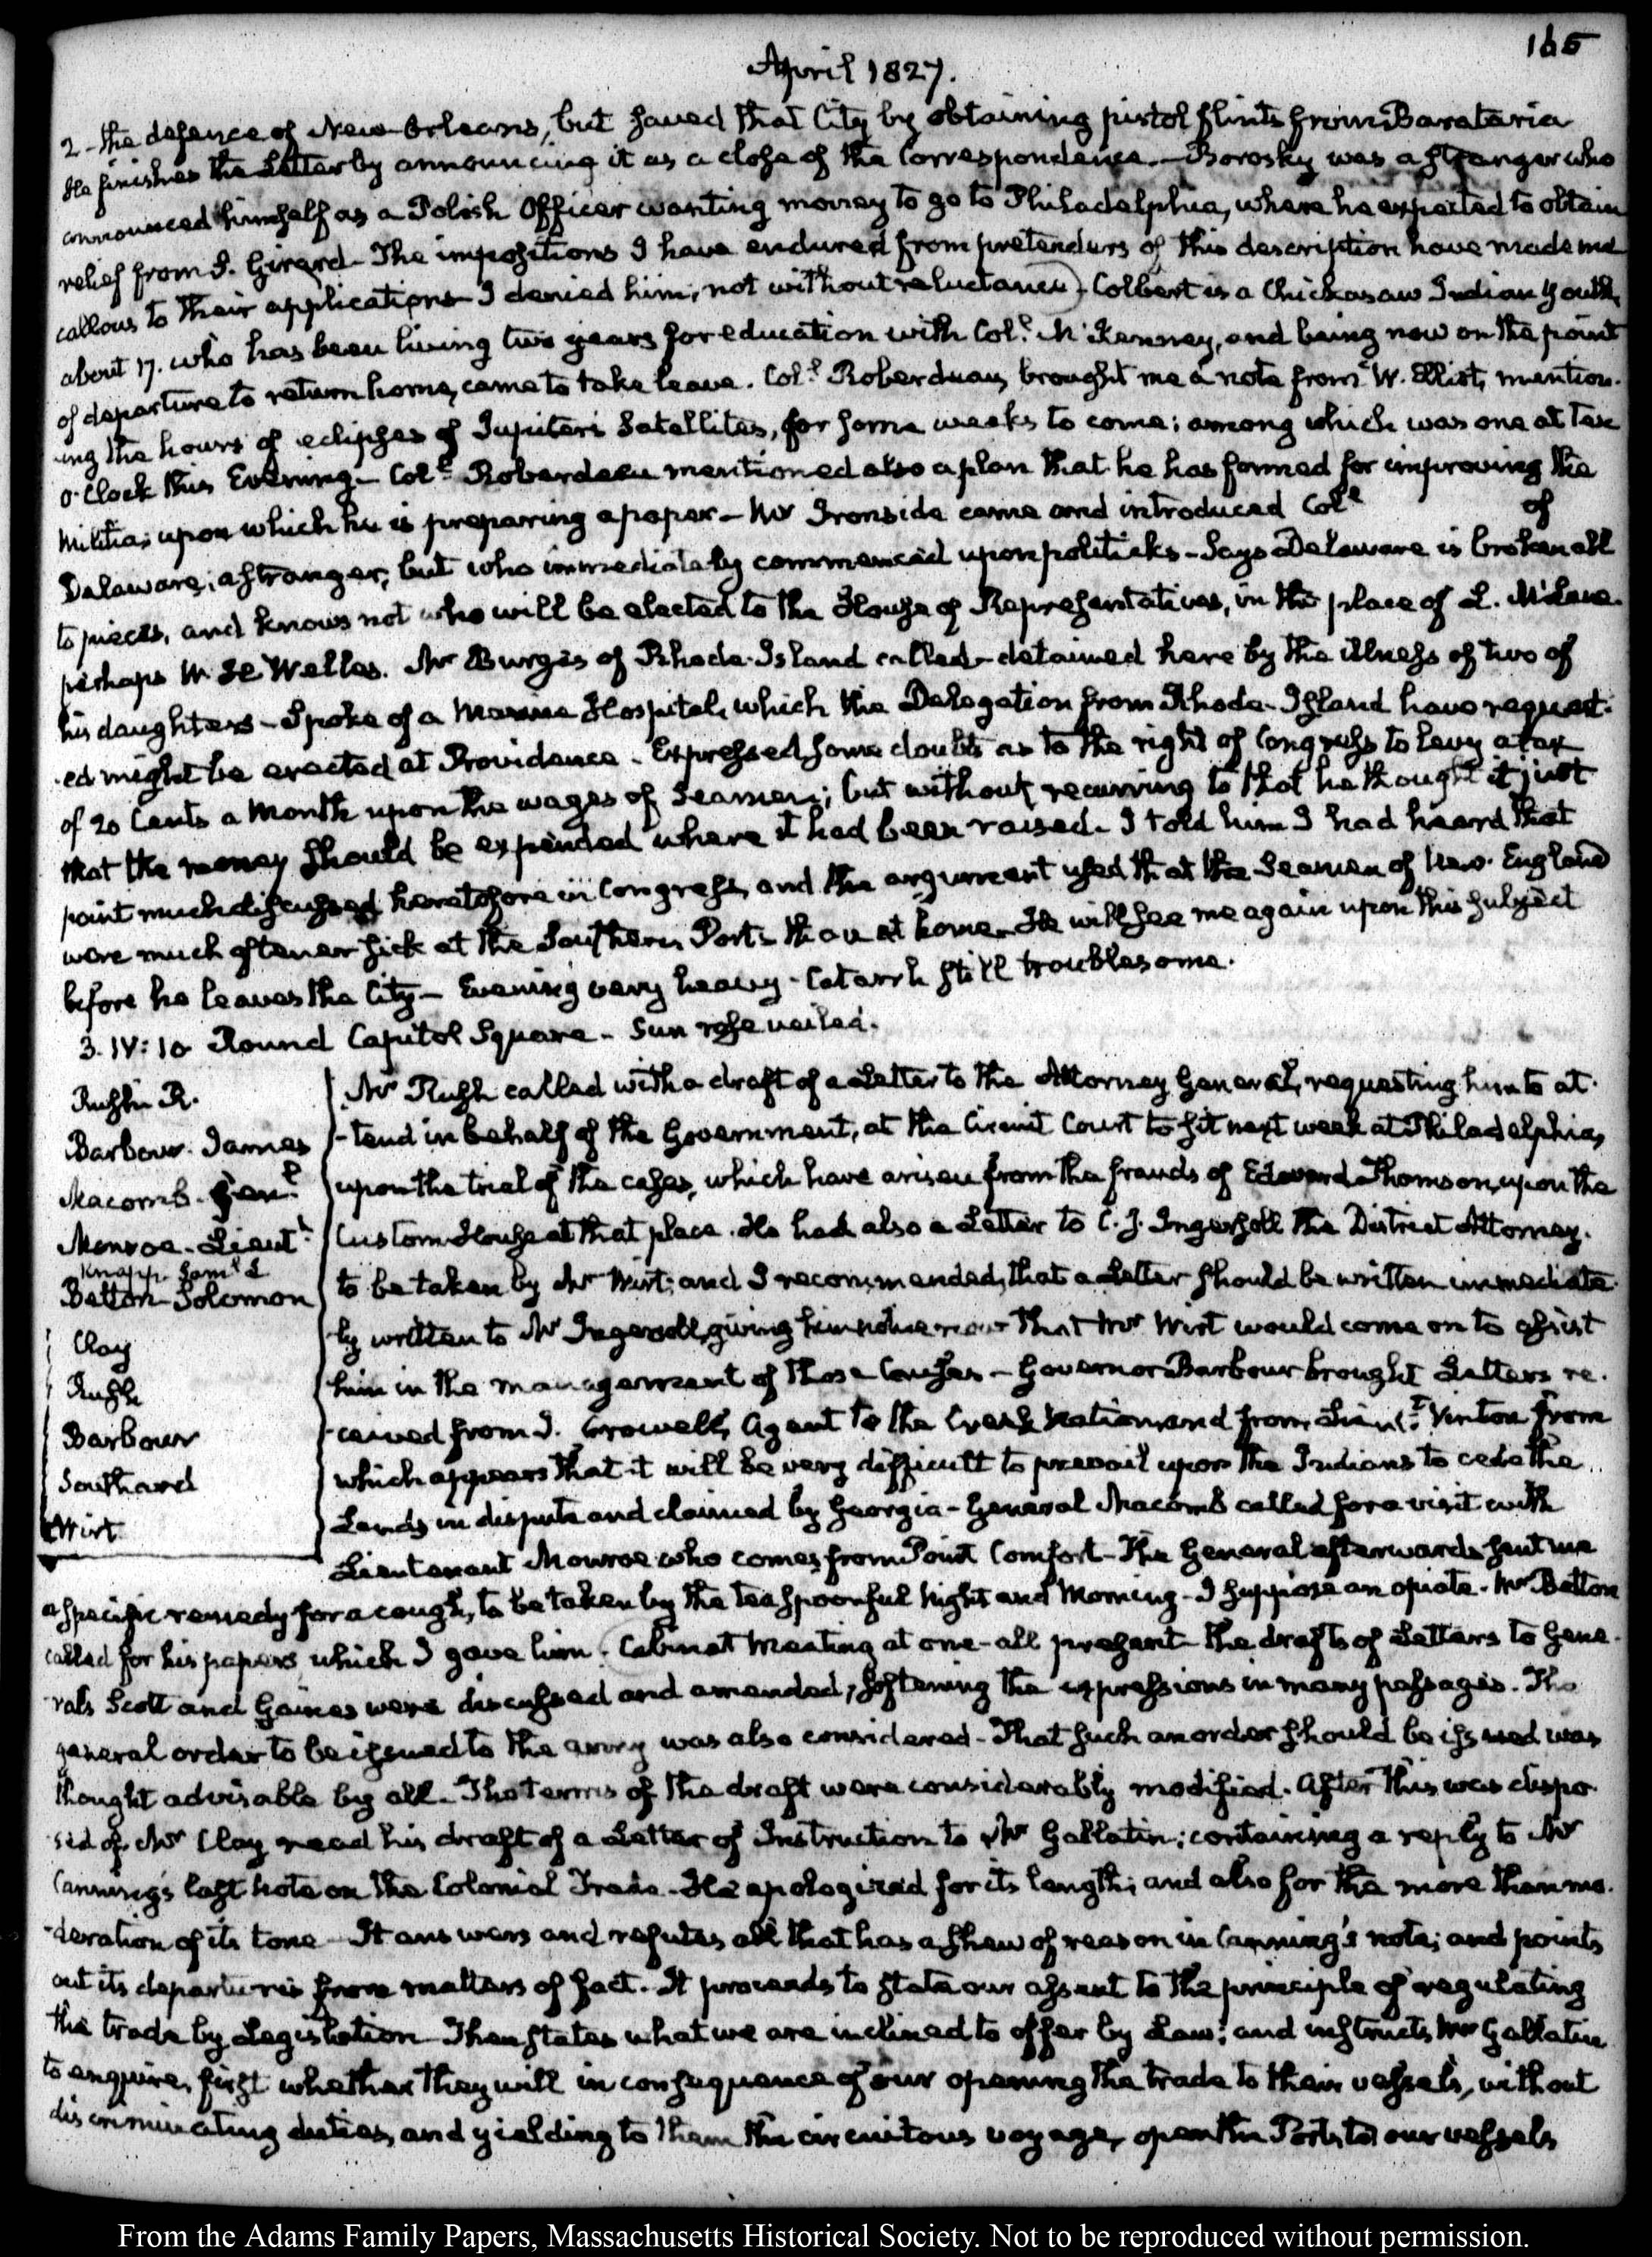 165
April 1827.
2 - the defence of New-Orleans, but saved that City by obtaining pistol flints from Barataria
He finishes the Letter by announcing it as a close of the Correspondence. - Borosky was a stranger who
announced himself as a Polish Officer wanting money to go to Philadelphia, where he expected to obtain
relief from S. Girard - The impositions I have endured from pretenders of this description have made me
callous to their applications - I denied him; not without reluctance - Colbert is a Chickasaw Indian youth,
about 17. who has been living two years for education with Coll. McKenney, and being now on the point
of departure to return home, came to take leave. Coll. Roberdeau, brought me a note from W. Elliot, mention-
ing the hours of eclipses of Jupiter's Satellites, for some weeks to come; among which was one at ten
o'Clock this Evening - Coll. Roberdeau mentioned also a plan that he has formed for improving the
Militia; upon which he is preparing a paper - Mr Ironside came and introduced Coll of
Delaware; a stranger, but who immediately commenced upon politicks - Says Delaware is broken all
to pieces, and knows not who will be elected to the House of Representatives, in the place of L. McLane.
perhaps W. H. Welles. Mr Burges of Rhode-Island called - detained here by the illness of two of
his daughters - Spoke of a Marine Hospital, which the Delegation from Rhode-Island have request-
-ed might be erected at Providence. Expressed some doubts as to the right of Congress to levy a tax
of 20 Cents a Month upon the wages of Seamen; but without recurring to that he thought it just
that the money should be expended where it had been raised - I told him I had heard that
point much discussed heretofore in Congress, and the argument used that the Seamen of New-England
were much oftener sick at the Southern Ports than at home - He will see me again upon this subject
before he leaves the City - Evening very heavy - Catarrh still troublesome.
3. IV: 10 Round Capitol Square - Sun rose veiled.
Rush R.
Barbour. James
Macomb. Genl.
Monroe - Lieutt
Knapp Saml L
Betton Solomon
Clay
Rush
Barbour
Southard
Wirt
Mr Rush called with a draft of a Letter to the Attorney General, requesting him to at-
-tend in behalf of the Government, at the Circuit Court to sit next week at Philadelphia,
upon the trial of the cases, which have arisen from the frauds of Edward Thomson, upon the
Custom-House at that place. He had also a Letter to C. J. Ingersoll the District Attorney.
to be taken by Mr Wirt; and I recommended, that a Letter should be written immediate-
ly written to Mr Ingersoll, giving him notice now that Mr Wirt would come on to assist
him in the management of those Causes - Governor Barbour brought Letters re-
-ceived from J. Crowell, Agent to the Creek Nation, and from Lieutt. Vinton from
which appears that it will be very difficult to prevail upon the Indians to cede the
Lands in dispute and claimed by Georgia - General Macomb called for a visit with
Lieutenant Monroe who comes from Point Comfort - The General afterwards sent me
a specific remedy for a cough, to be taken by the teaspoonful Night and Morning - I suppose an opiate. Mr Betton
called for his papers which I gave him. Cabinet Meeting at one - all present - The drafts of Letters to Gene-
rals Scott and Gaines were discussed and amended, softening the expressions in many passages. The
general order to be issued to the army was also considered - That such an order should be issued was
thought advisable by all - The terms of the draft were considerably modified. After this was dispo-
sed of, Mr Clay read his draft of a Letter of Instruction to Mr Gallatin; containing a reply to Mr
Canning's last Note on the Colonial Trade - He apologized for its length; and also for the more than mo-
-deration of its tone - It answers and refutes all that has a shew of reason in Canning's note; and points
out its departures from matters of fact. It proceeds to state our assent to the principle of regulating
the trade by Legislation - Then states what we are inclined to offer by Law; and instructs Mr Gallatin
to enquire, first whether they will in consequence of our opening the trade to their vessels, without
discriminating duties, and yielding to them the circuitous voyage, open the Ports to our vessels
From the Adams Family Papers, Massachusetts Historical Society. Not to be reproduced without permission.